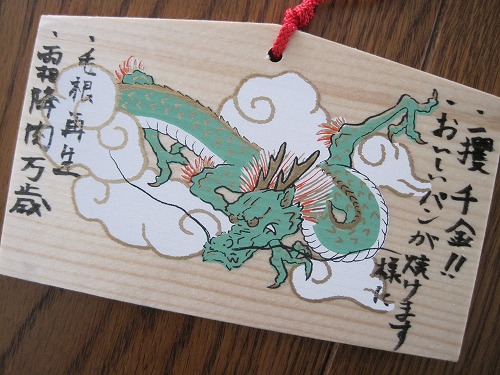 ・一攫千金!!
・おいしいパンが焼けます
様に
・毛根再生
・霜降肉万歳